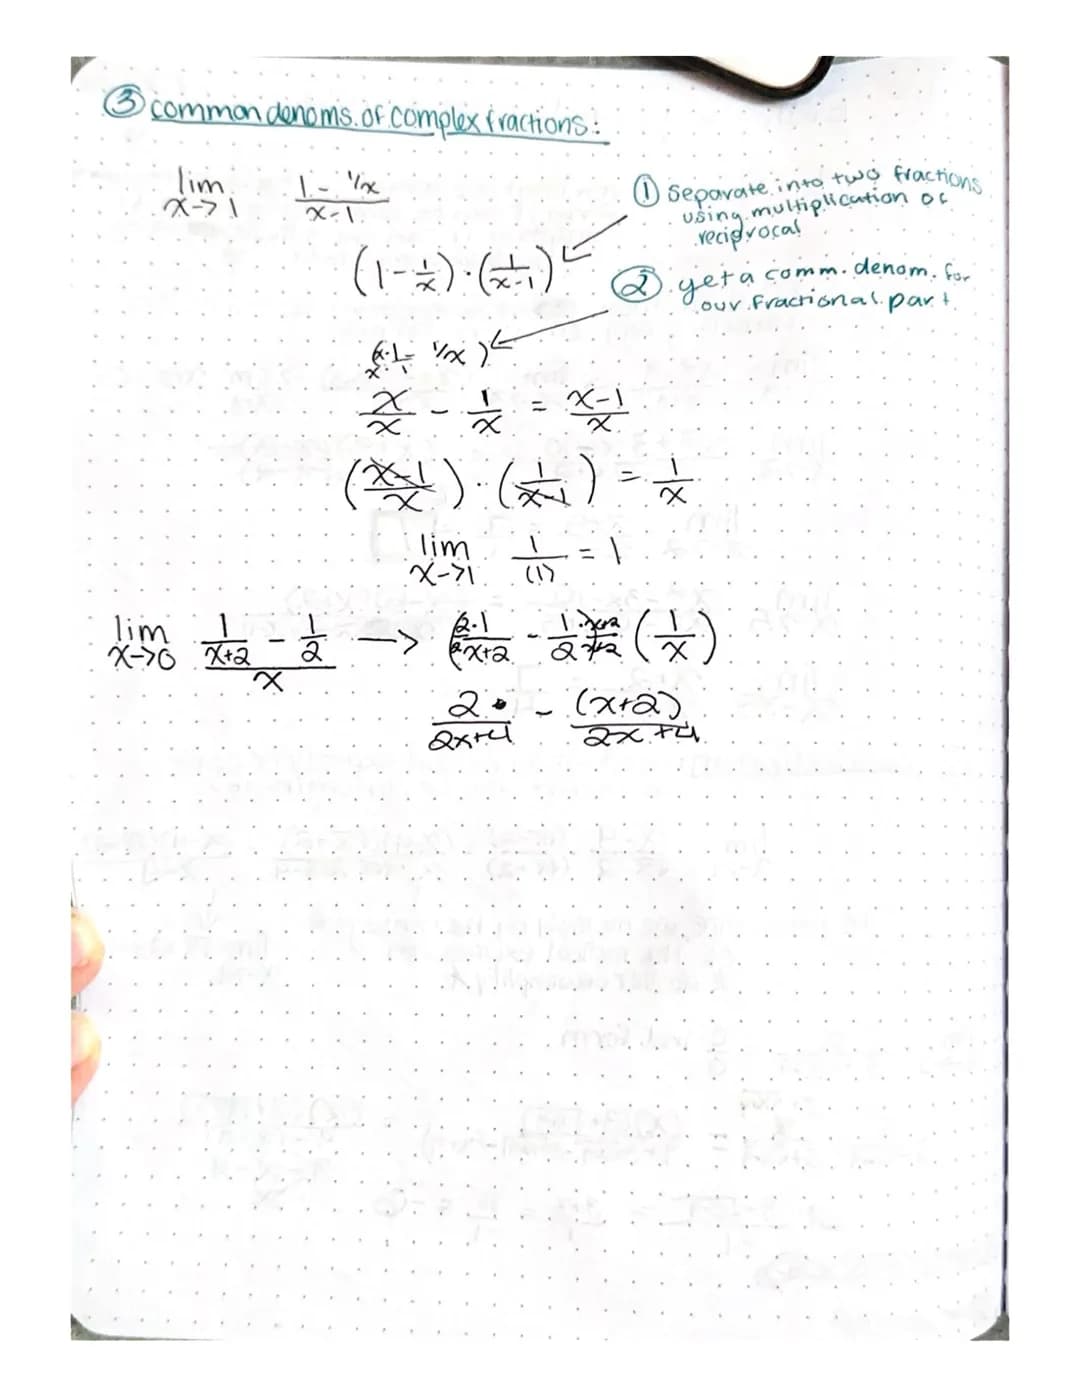 ③ common denoms. of complex fractions:
lim x->1 (1 - 1/x)/(x-1)
① Separate into two fractions
using multiplication of
reciprocal
(1 - 1/x) · (1/(x-1))
② get a comm. denom. for
our fractional part.
(x·1/x·1 - 1/x)
x/x - 1/x = (x-1)/x
((x-1)/x) · (1/(x-1)) = 1/x
lim x->1 1/(1) = 1
lim x->0 (1/(x+2) - 1/2)/x -> (2·1/2 x+2 - 1·x+2/2 x+2 (1/x)
2/(2x+4) - (x+2)/(2x+4)